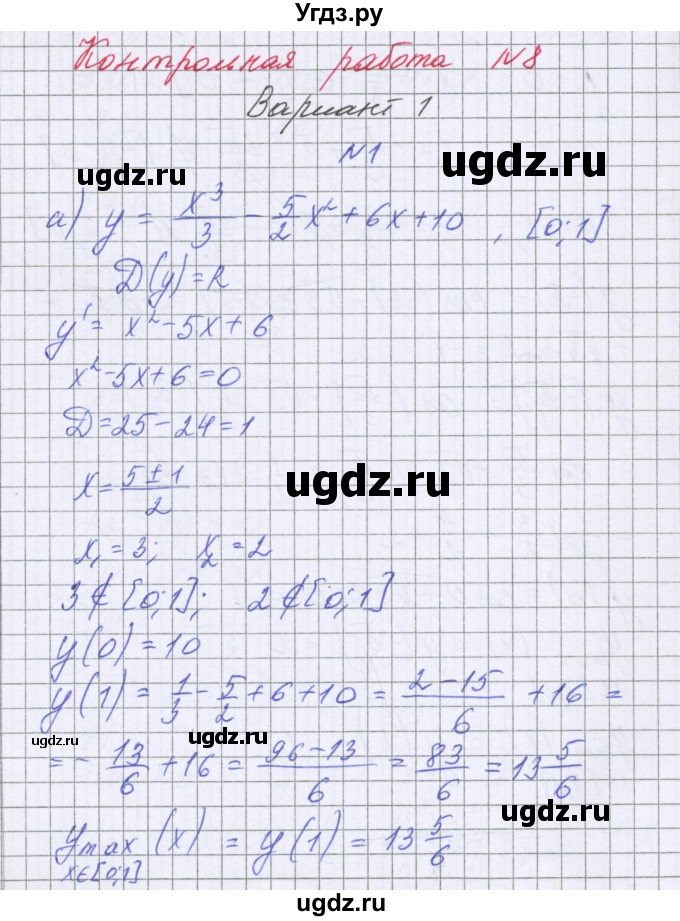 Угдз.ру
Контрольная работа №8
Вариант 1
ugdz.ru
№1
а) y = x³/3 - 5/2 x² + 6x + 10 , [0;1]
ugdz.ru
D(y) = R
y' = x² - 5x + 6
x² - 5x + 6 = 0
D = 25 - 24 = 1
x = (5 ± 1)/2
ugdz.ru
x₁ = 3; x₂ = 2
3 ∉ [0;1]; 2 ∉ [0;1]
y(0) = 10
y(1) = 1/3 - 5/2 + 6 + 10 = (2 - 15)/6 + 16 =
ugdz.ru
ugdz.ru
= - 13/6 + 16 = (96 - 13)/6 = 83/6 = 13 5/6
y max (x) = y(1) = 13 5/6
x∈[0;1]
ugdz.ru